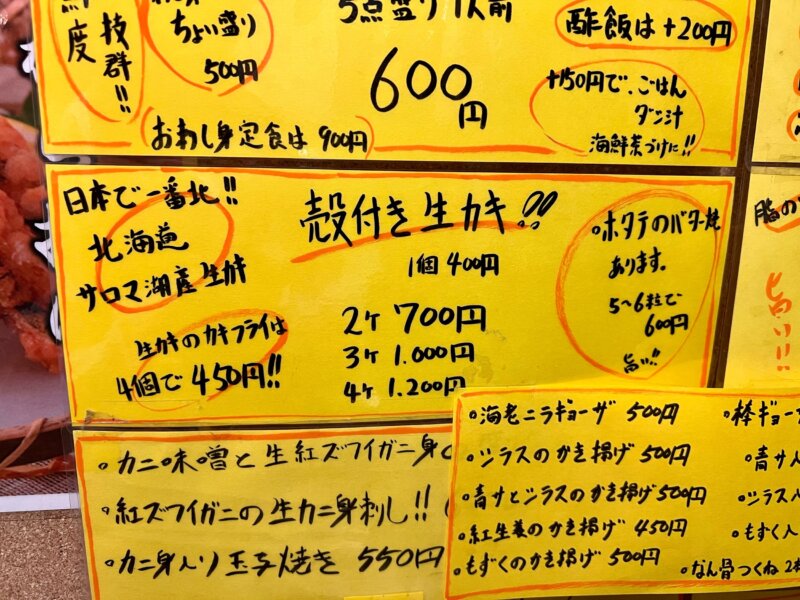 度
抜群!!
ちょい盛り
500円
5点盛り1人前
600円
酢飯は+200円
+150円で、ごはん
ダシ汁
海鮮茶づけに!!
おさし身定食は 900円
日本で一番北!!
北海道
サロマ湖産生ガキ
生ガキのカキフライは
4個で450円!!
殻付き生ガキ!!
1個 400円
2ケ 700円
3ケ 1.000円
4ケ 1.200円
ホタテのバター焼
あります。
5~6粒で
600円
旨い!!
旨い!!
。カニ味噌と生紅ズワイガニ身
。紅ズワイガニの生カニ身刺し!!
。カニ身入り玉子焼き 550円
。海老ニラギョーザ 500円
。シラスのかき揚げ 500円
。青サとシラスのかき揚げ500円
。紅生姜のかき揚げ 450円
。もずくのかき揚げ 500円
。棒ギョー
。青サ
。シラス
。もずく入
。なん骨つくね 2